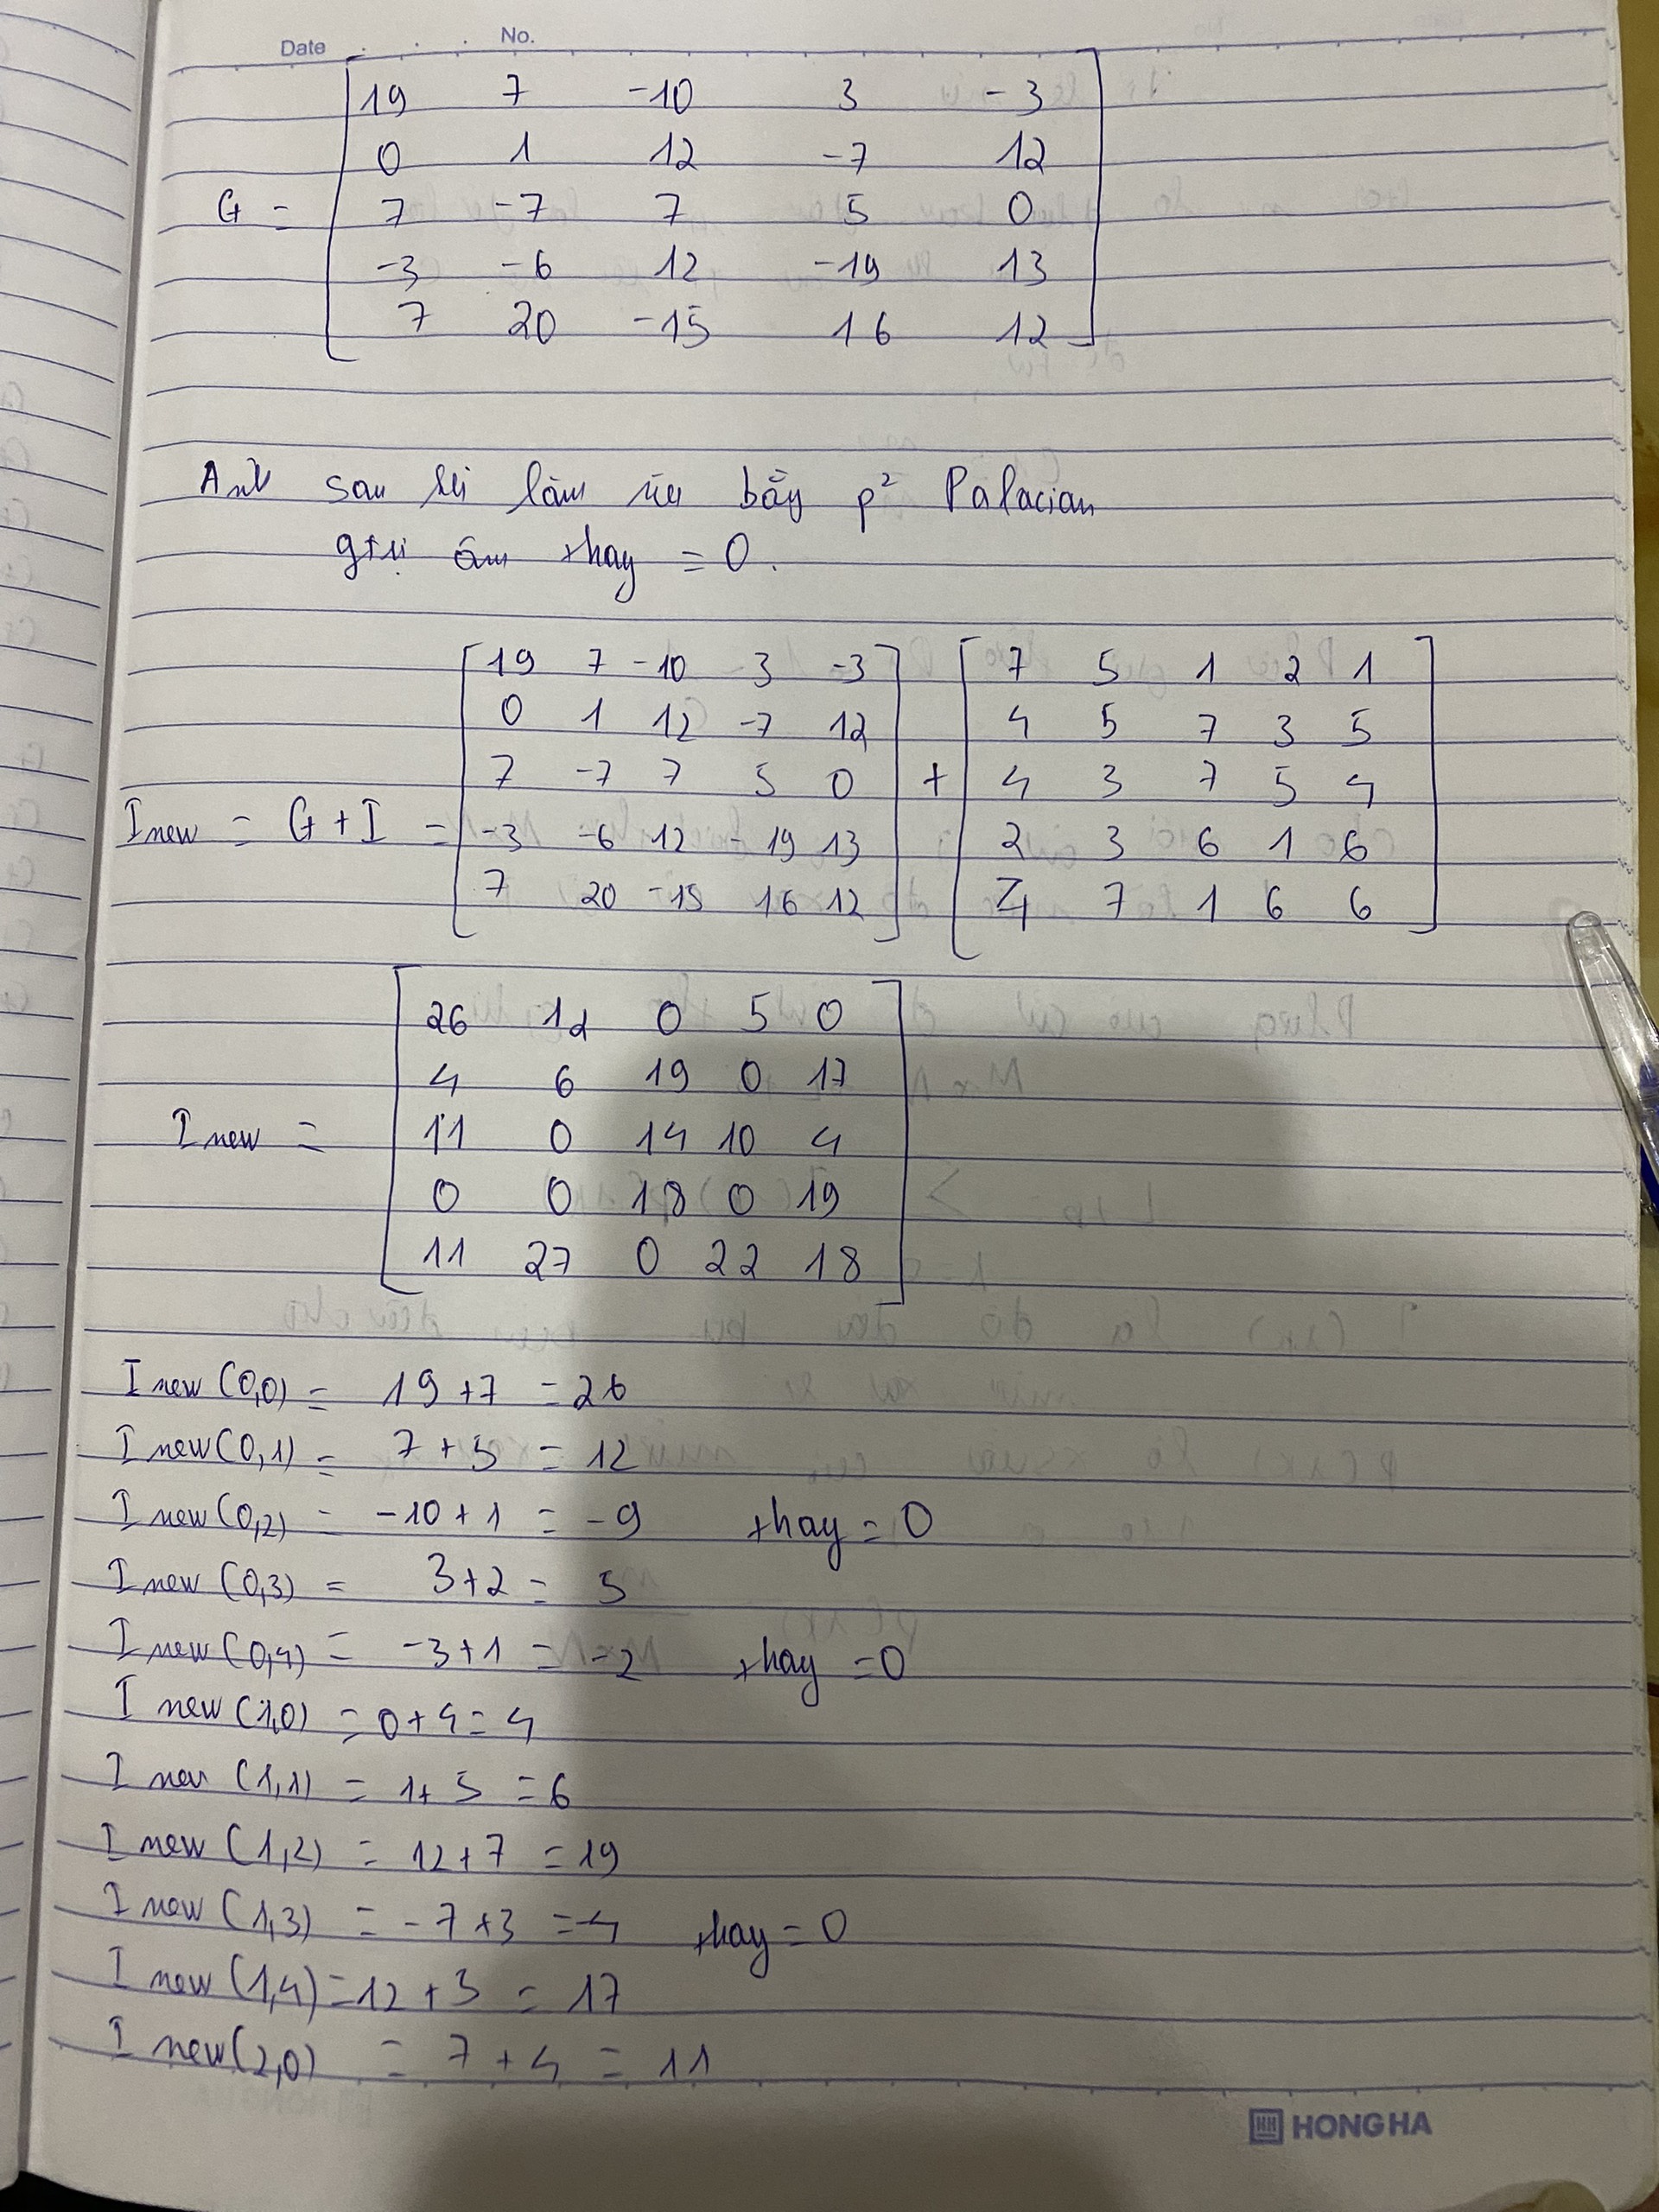 Date No.
19 7 -10 3 -3
0 1 12 -7 12
G = 7 -7 7 5 0
-3 -6 12 -19 13
7 20 -15 16 12
Ảnh sau khi làm nét bằng p² Palacian
gtrị âm thay = 0.
19 7 -10 3 -3 7 5 1 2 1
0 1 12 -7 12 4 5 7 3 5
7 -7 7 5 0 + 4 3 7 5 4
I new = G + I = -3 -6 12 -19 13 2 3 6 1 6
7 20 -15 16 12 4 7 1 6 6
26 12 0 5 0
4 6 19 0 17
I new = 11 0 14 10 4
0 0 18 0 19
11 27 0 22 18
I new (0,0) = 19 + 7 = 26
I new (0,1) = 7 + 5 = 12
I new (0,2) = -10 + 1 = -9 thay = 0
I new (0,3) = 3 + 2 = 5
I new (0,4) = -3 + 1 = -2 thay = 0
I new (1,0) = 0 + 4 = 4
I new (1,1) = 1 + 5 = 6
I new (1,2) = 12 + 7 = 19
I new (1,3) = -7 + 3 = -4 thay = 0
I new (1,4) = 12 + 5 = 17
I new (2,0) = 7 + 4 = 11
HH HONG HA